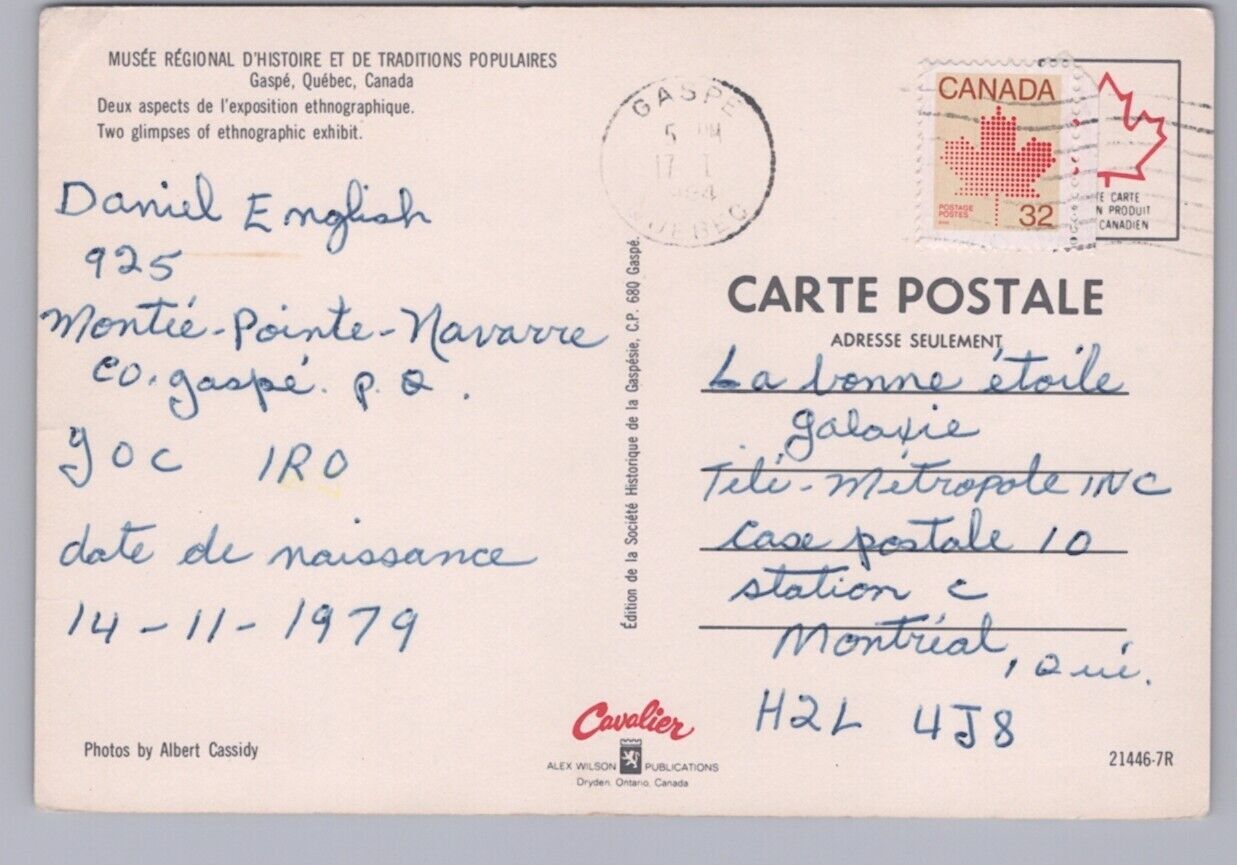 MUSÉE RÉGIONAL D'HISTOIRE ET DE TRADITIONS POPULAIRES
Gaspé, Québec, Canada
Deux aspects de l'exposition ethnographique.
Two glimpses of ethnographic exhibit.
Daniel English
925
Montée-Pointe-Navarre
co. gaspé. p.Q.
GOC 1RO
date de naissance
14-11-1979
Photos by Albert Cassidy
Édition de la Société Historique de la Gaspésie, C.P. 680 Gaspé.
Cavalier
ALEX WILSON PUBLICATIONS
Dryden, Ontario, Canada
GASPE
5 PM
17 I
1984
QUEBEC
CANADA
POSTAGE
POSTES
32
TE CARTE
N PRODUIT
CANADIEN
CARTE POSTALE
ADRESSE SEULEMENT
La bonne étoile
galaxie
Télé-Métropole INC
case postale 10
station c
Montréal, Qué.
H2L 4J8
21446-7R